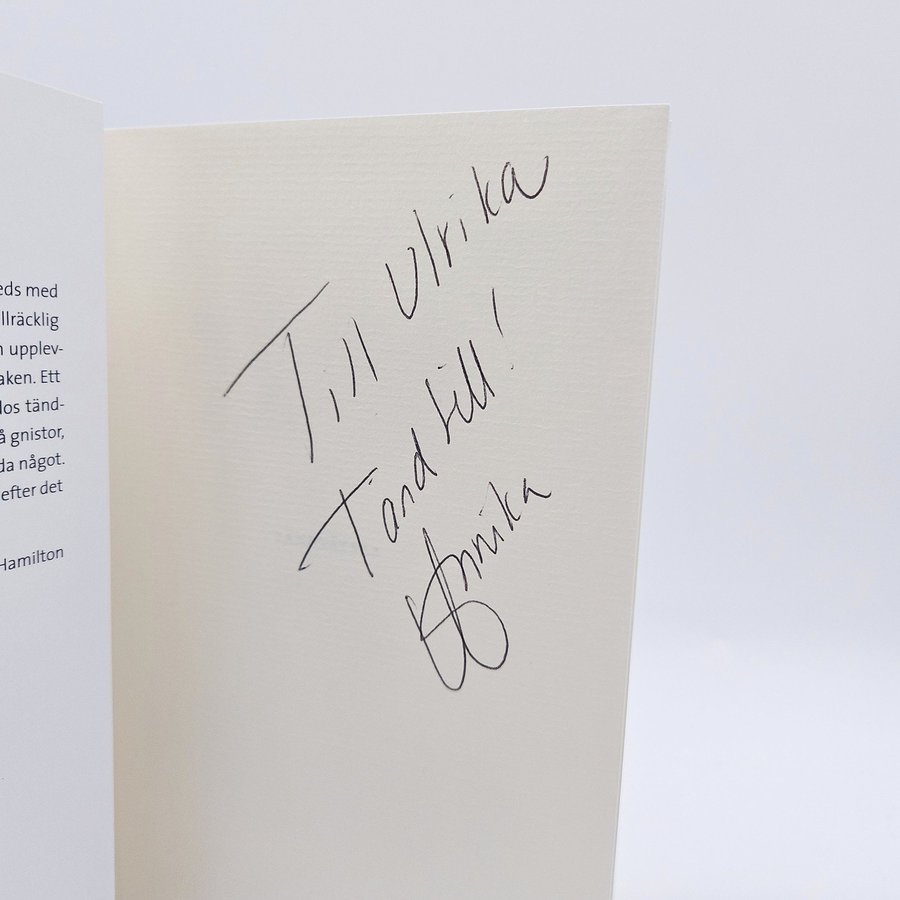 eds med
llräcklig
n upplev-
aken. Ett
los tänd-
å gnistor,
da något.
efter det
Hamilton
Till Ulrika
Tänd till!
Annika